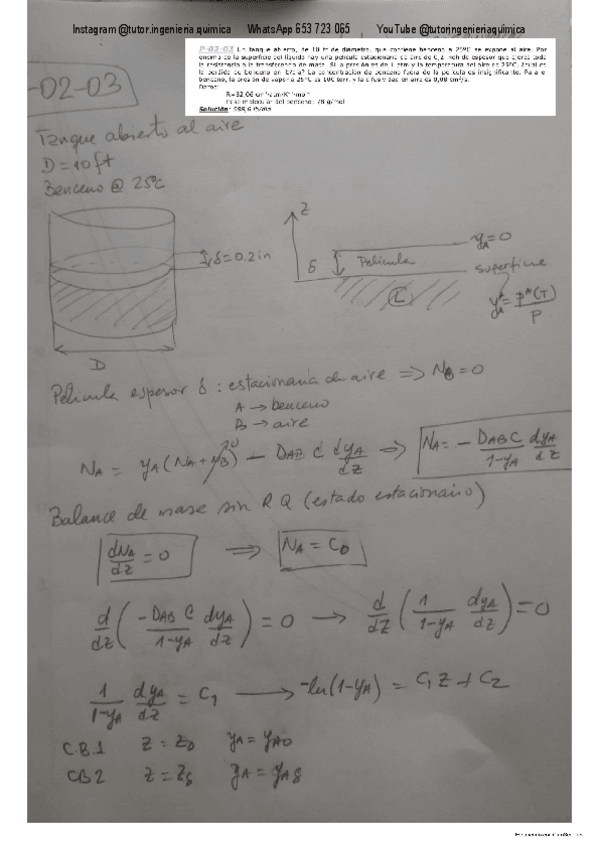 Instagram @tutor.ingenieria.quimica WhatsApp 653 723 065 YouTube @tutoringenieriaquimica
P-02-03 Un tanque abierto, de 10 ft de diámetro, que contiene benceno a 25ºC se expone al aire. Por
encima de la superficie del líquido hay una película estacionaria de aire de 0,2 inch de espesor que ejerce toda
la resistencia a la transferencia de masa. Si la presión es de 1 atm y la temperatura del aire es 25ºC, ¿Cuál es
la pérdida de benceno en lb/día? La concentración de benceno fuera de la película es insignificante. Para el
benceno, la presión de vapor a 25ºC es 100 torr, y la difusividad en aire es 0,08 cm²/s.
Datos:
Peso molecular del benceno: 78 g/mol
Solución:
-02-03
Tanque abierto al aire
D = 10 ft
Benceno @ 25ºC
δ = 0.2 in
D
z
δ
Película
y_A = 0
superficie
L
y_A* = P*(T)/P
Película espesor δ : estacionaria de aire ⇒ N_B = 0
A → benceno
B → aire
N_A = y_A (N_A + N_B)⁰ − D_AB C dy_A/dz ⇒ N_A = − D_AB C/(1−y_A) dy_A/dz
Balance de masa sin RQ (estado estacionario)
dN_A/dz = 0 ⇒ N_A = C_0
d/dz ( −D_AB C/(1−y_A) dy_A/dz ) = 0 → d/dz ( 1/(1−y_A) dy_A/dz ) = 0
1/(1−y_A) dy_A/dz = C_1 → −ln(1−y_A) = C_1 z + C_2
C.B.1 z = z_0 y_A = y_A0
CB2 z = z_δ y_A = y_Aδ